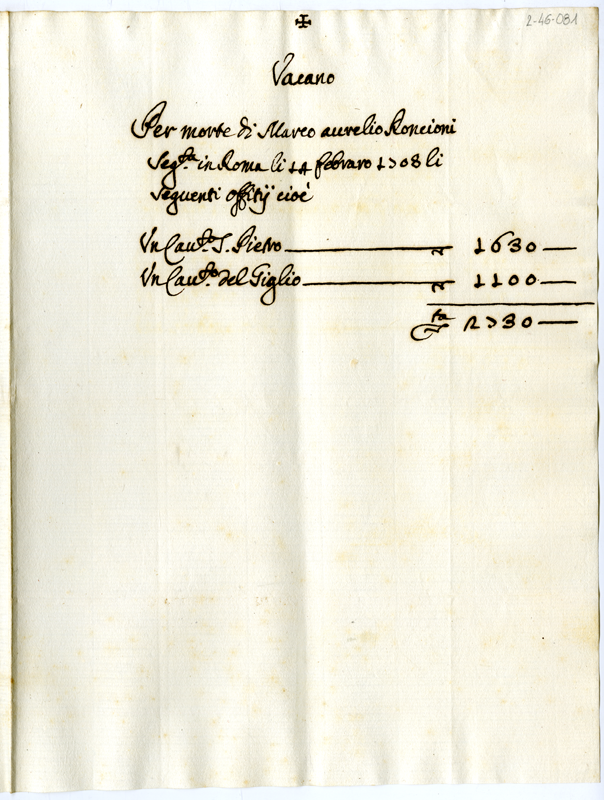 2-46-081
Vacano
Per morte di Marco aurelio Roncioni
Seg.ta in Roma li 14 febraro 1708 li
seguenti offitij cioè
Vn Cau.to S. Pietro — 1630 —
Vn Cau.to del Giglio — 1100 —
2730 —